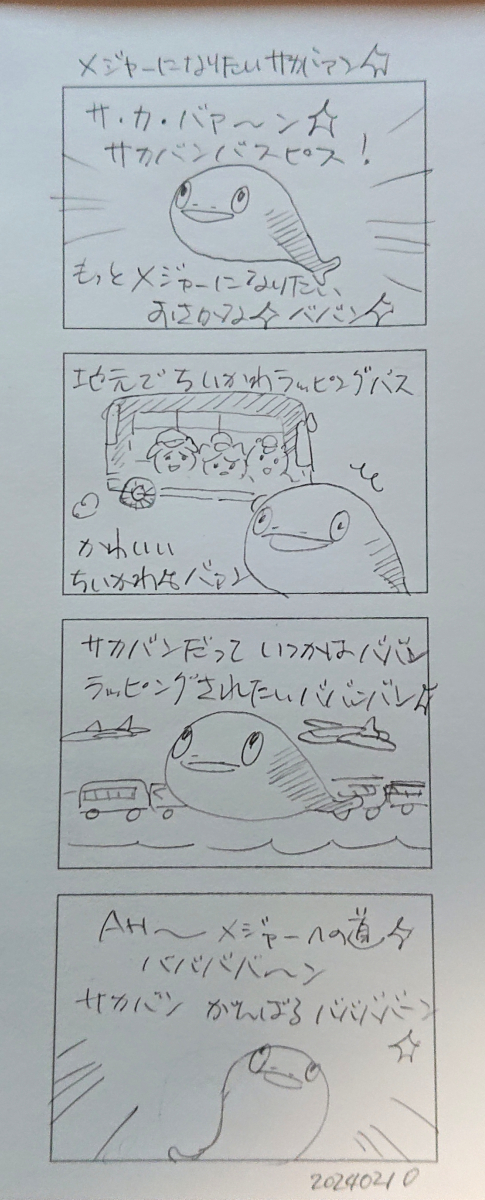 メジャーになりたいサカバァン☆
サ・カ・バァ〜ン☆
サカバンバスピス!
もっとメジャーになりたい
おさかな☆ババン☆
地元でちいかわラッピングバス
かわいい
ちいかわなバァン
サカバンだっていつかはババン
ラッピングされたいババンバン☆
AH〜メジャーへの道☆
バババババーン
サカバン がんばるババババーン
☆
20240210